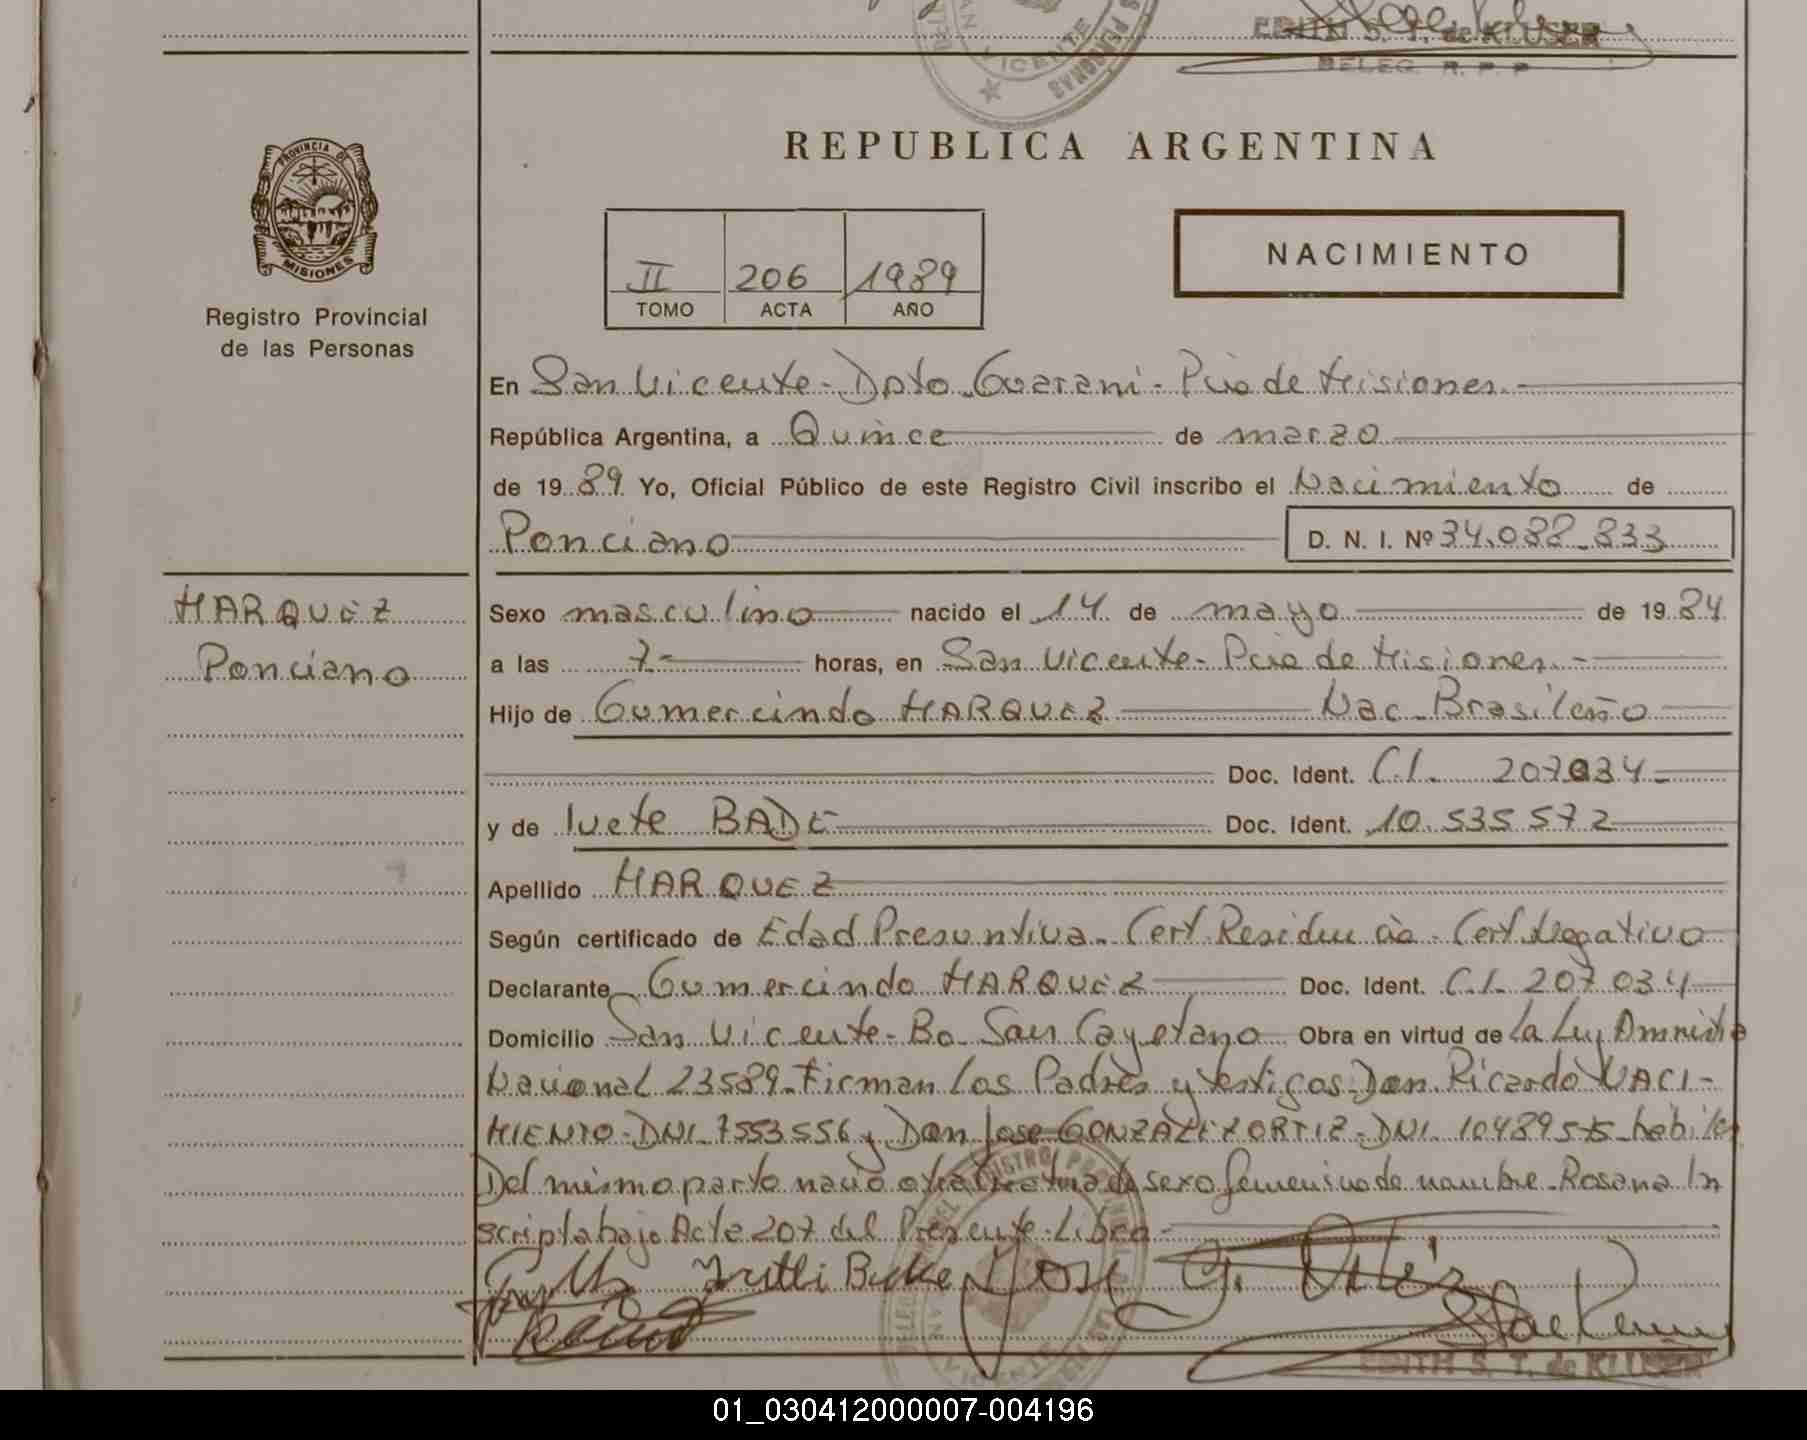 EDITH S. T. de KLUSER
DELEG. R. P. P.
SAN VICENTE
PERSONAS
REPUBLICA ARGENTINA
PROVINCIA DE
MISIONES
Registro Provincial
de las Personas
II 206 1989
TOMO ACTA AÑO
NACIMIENTO
En San Vicente - Dpto. Guarani - Pcia de Misiones.-
República Argentina, a Quince de marzo
de 1989 Yo, Oficial Público de este Registro Civil inscribo el Nacimiento de
Ponciano D. N. I. Nº 34.088.833
MARQUEZ
Ponciano
Sexo masculino nacido el 14 de mayo de 1984
a las 7- horas, en San Vicente - Pcia de Misiones.-
Hijo de Gumercindo MARQUEZ Nac. Brasileño
Doc. Ident. C.I. 207034-
y de Ivete BADE Doc. Ident. 10.535.572
Apellido MARQUEZ
Según certificado de Edad Presuntiva - Cert. Residencia - Cert. Negativo
Declarante Gumercindo MARQUEZ Doc. Ident. C.I. 207034
Domicilio San Vicente - Bo. San Cayetano Obra en virtud de la Ley Amnistia
Nacional 23589 - Firman los Padres y testigos Don Ricardo NACI-
MIENTO - DNI. 7553556 y Don Jose GONZALEZ ORTIZ - DNI. 10489575 - habiles
Del mismo parto nacio otra de sexo femenino de nombre Rosana In
scripta bajo Acta 207 del Presente Libro -
Jose G. Ortiz
EDITH S. T. de KLUSER
01_030412000007-004196